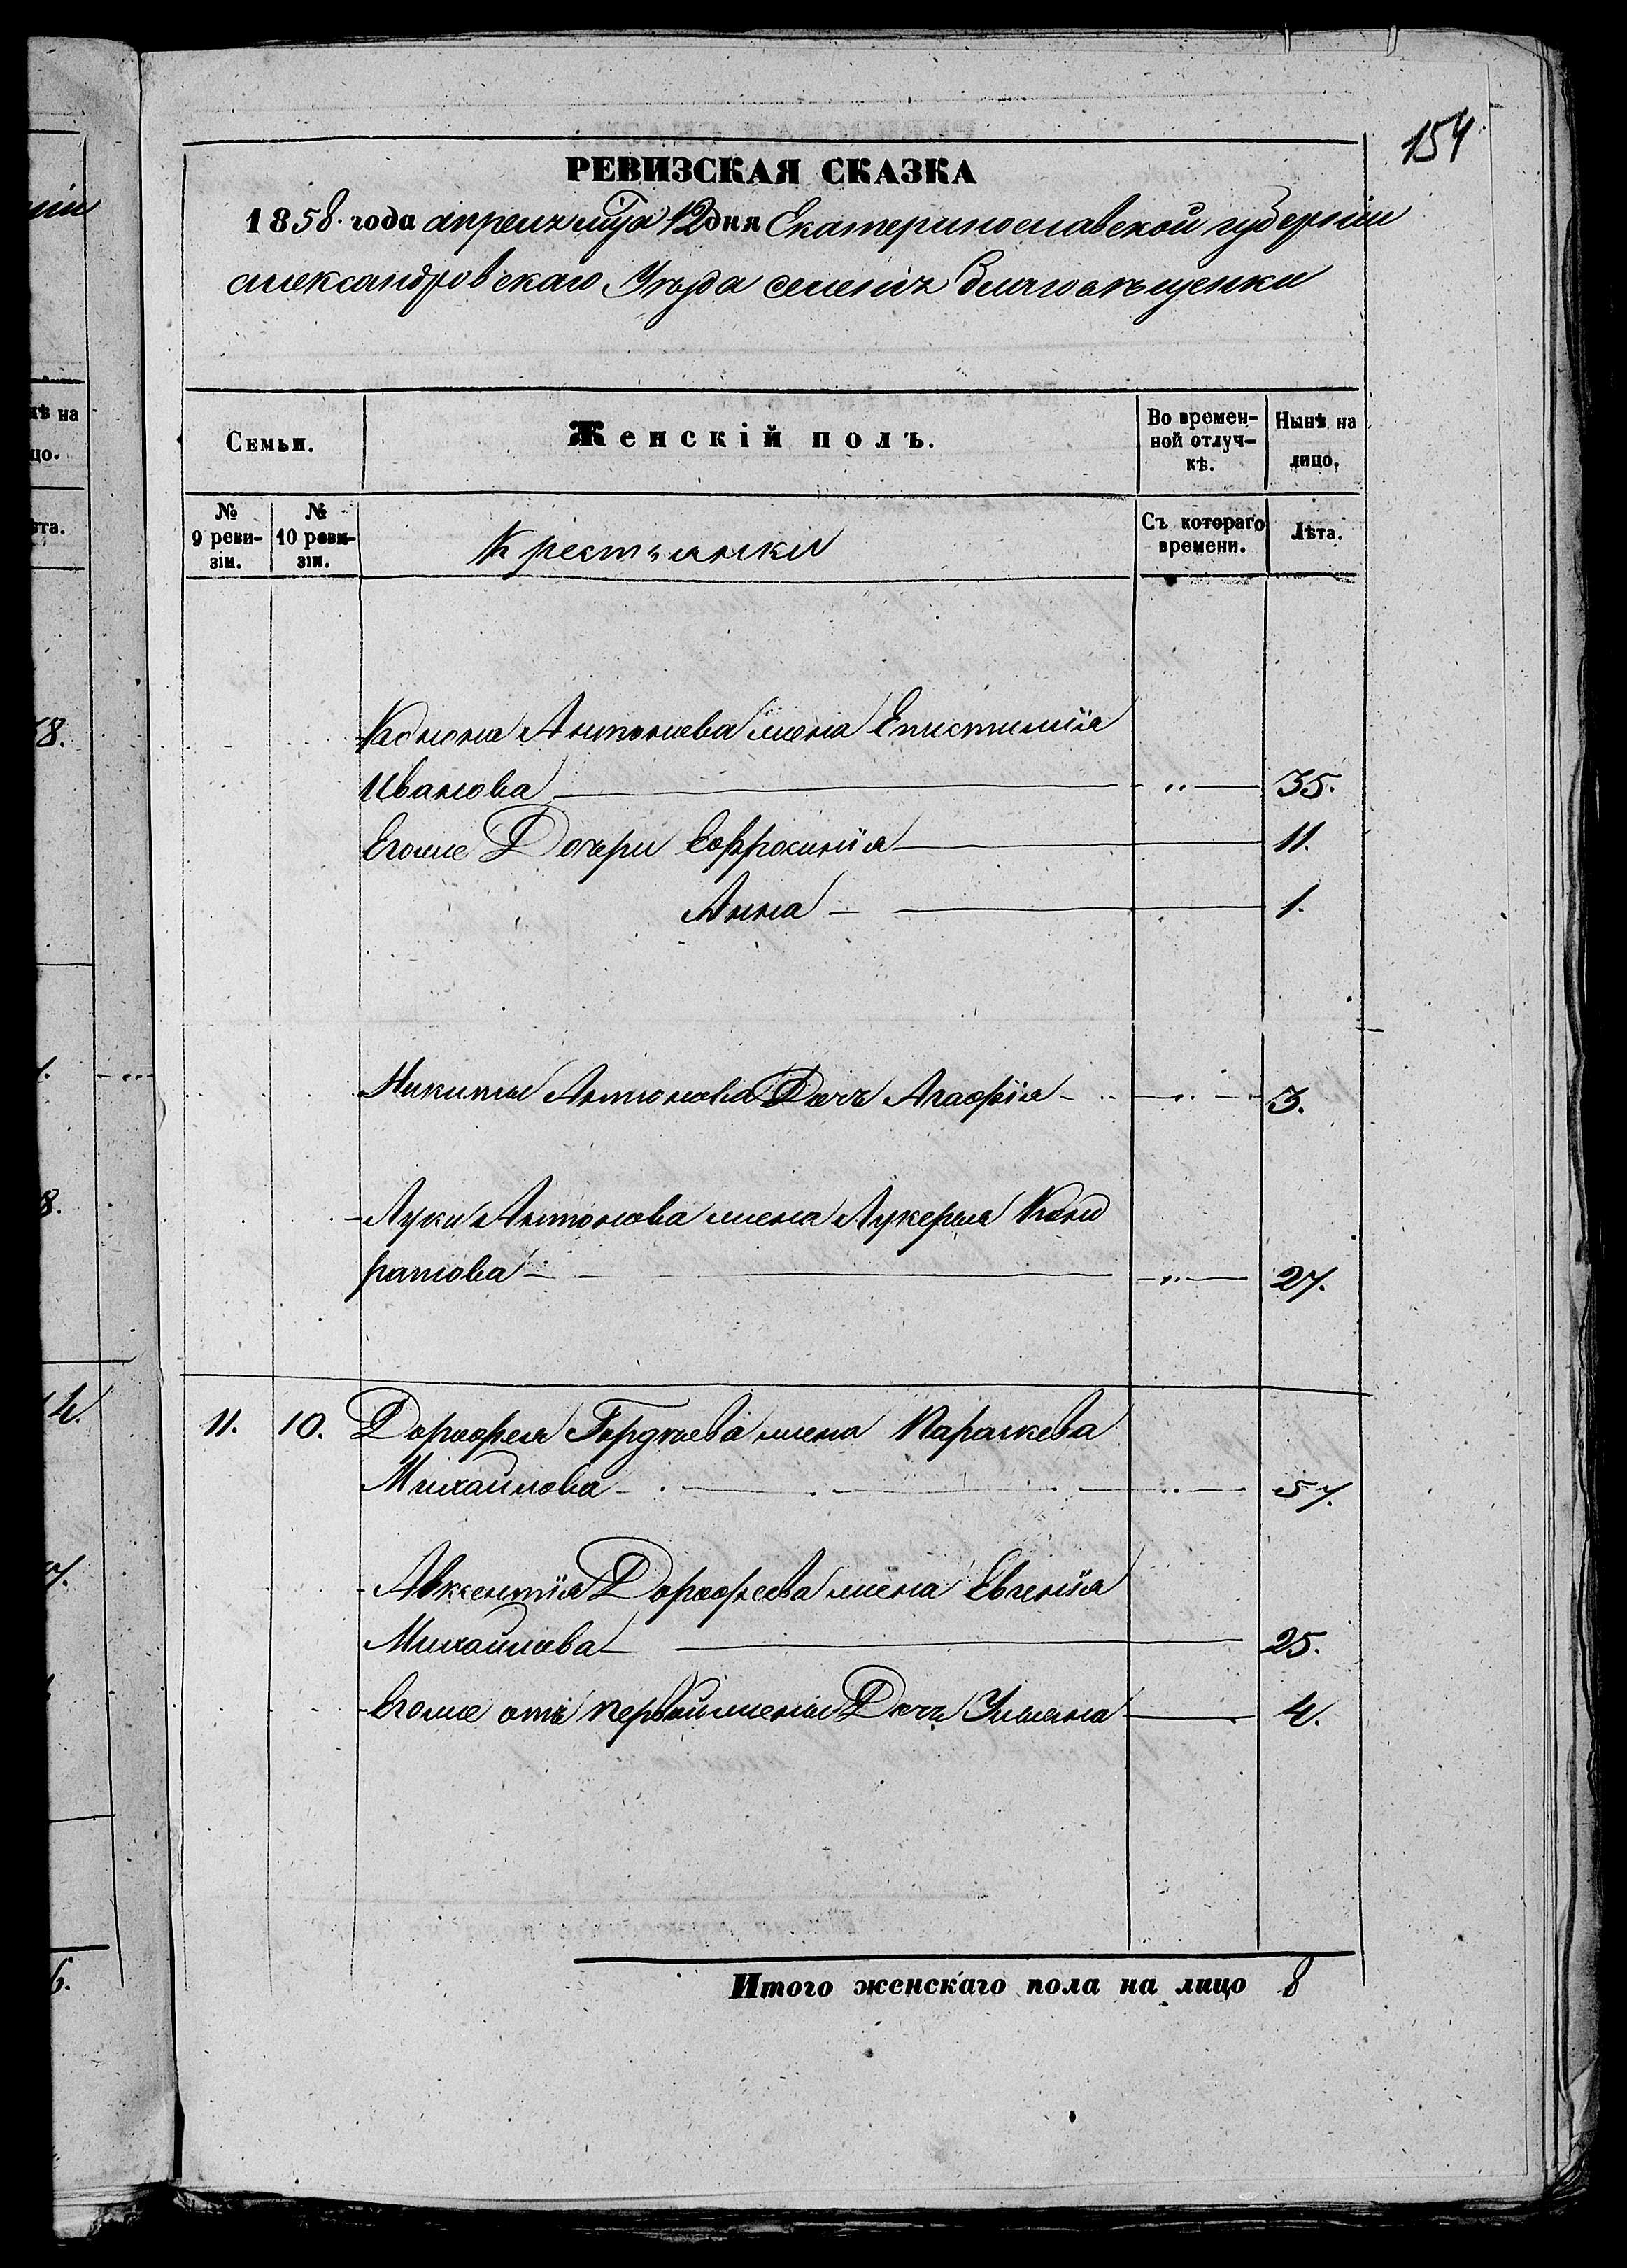 154
РЕВИЗСКАЯ СКАЗКА
1858. года апреля мца 12 дня Екатеринославской губерніи
александровскаго Уѣзда селенія благовѣщенки
Семьи.
Женскій полъ.
Во времен-
ной отлуч-
кѣ.
Нынѣ на
лицо.
№
9 реви-
зіи.
№
10 реви-
зіи.
Крестьянки
Съ котораго
времени.
Лѣта.
Конона Антонова жена Епистимія
Иванова — „ — 35.
Егоже Дочери Евфросинія — 11.
Анна — 1.
Никиты Антонова Дочь Агафія — „ — 3.
Луки Антонова жена Лукерья Конд
ратова — „ — 27.
11. 10. Дорофея Гордѣева жена Параскева
Михайлова — „ — 57.
Авксентія Дорофеева жена Евгенія
Михайлова — 25.
Егоже отъ первой жены Дочь Ульяна — 4.
Итого женскаго пола на лицо 8
ніи
нѣ на
цо.
ѣта.
8.
1.
8.
4.
7.
6.